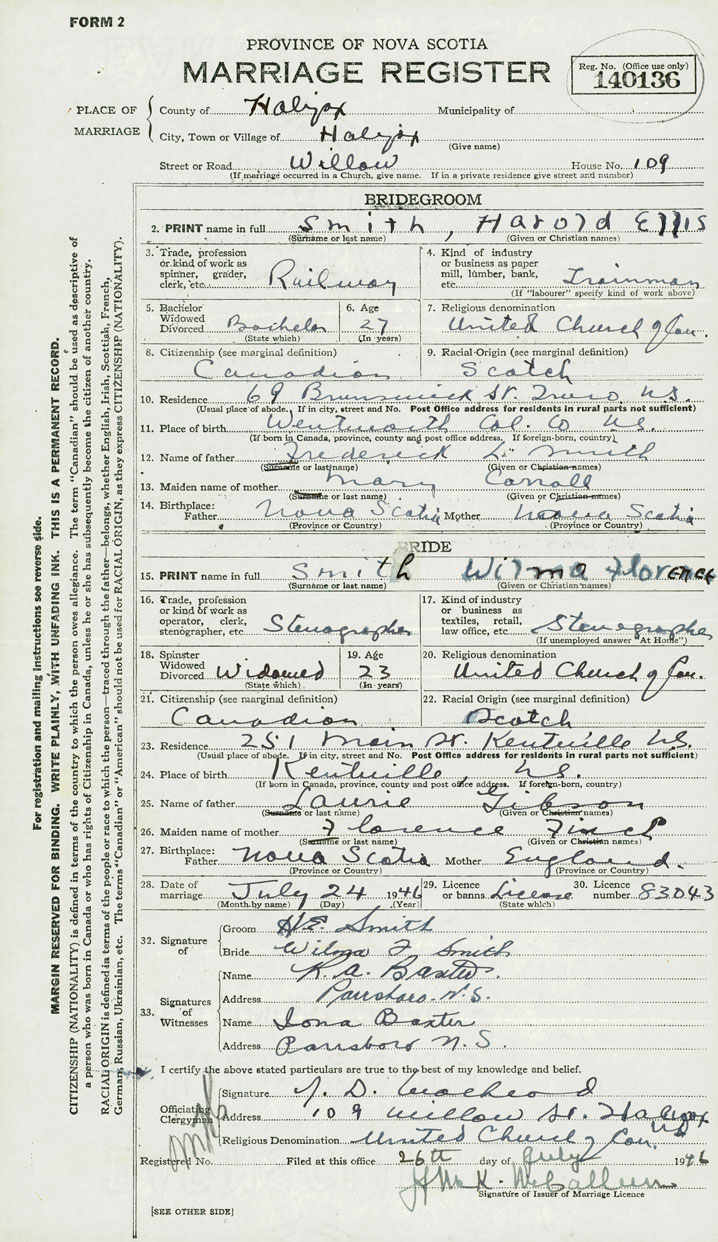 FORM 2
PROVINCE OF NOVA SCOTIA
MARRIAGE REGISTER
Reg. No. (Office use only)
140136
PLACE OF MARRIAGE
County of Halifax Municipality of
City, Town or Village of Halifax
(Give name)
Street or Road Willow House No. 109
(If marriage occurred in a Church, give name. If in a private residence give street and number)
BRIDEGROOM
2. PRINT name in full Smith, Harold Ellis
(Surname or last name) (Given or Christian names)
3. Trade, profession or kind of work as spinner, grader, clerk, etc. Railway
4. Kind of industry or business as paper mill, lumber, bank, etc. Trainman
(If "labourer" specify kind of work above)
5. Bachelor Widowed Divorced Bachelor
(State which)
6. Age 27
(In years)
7. Religious denomination
United Church of Can.
8. Citizenship (see marginal definition)
Canadian
9. Racial Origin (see marginal definition)
Scotch
10. Residence 69 Brunswick St. Truro N.S.
(Usual place of abode. If in city, street and No. Post Office address for residents in rural parts not sufficient)
11. Place of birth Wentworth Col. Co N.S.
(If born in Canada, province, county and post office address. If foreign-born, country)
12. Name of father Frederick L. Smith
(Surname or last name) (Given or Christian names)
13. Maiden name of mother Mary Carroll
(Surname or last name) (Given or Christian names)
14. Birthplace: Father Nova Scotia Mother Nova Scotia
(Province or Country) (Province or Country)
BRIDE
15. PRINT name in full Smith Wilma Florence
(Surname or last name) (Given or Christian names)
16. Trade, profession or kind of work as operator, clerk, stenographer, etc. Stenographer
17. Kind of industry or business as textiles, retail, law office, etc. Stenographer
(If unemployed answer "At Home")
18. Spinster Widowed Divorced Widowed
(State which)
19. Age 23
(In years)
20. Religious denomination
United Church of Can.
21. Citizenship (see marginal definition)
Canadian
22. Racial Origin (see marginal definition)
Scotch
23. Residence 251 Main St. Kentville N.S.
(Usual place of abode. If in city, street and No. Post Office address for residents in rural parts not sufficient)
24. Place of birth Kentville, N.S.
(If born in Canada, province, county and post office address. If foreign-born, country)
25. Name of father Laurie Gibson
(Surname or last name) (Given or Christian names)
26. Maiden name of mother Florence Finch
(Surname or last name) (Given or Christian names)
27. Birthplace: Father Nova Scotia Mother England.
(Province or Country) (Province or Country)
28. Date of marriage July 24 1946
(Month by name) (Day) (Year)
29. Licence or banns License
(State which)
30. Licence number 83043
32. Signature of
Groom H E. Smith
Bride Wilma F Smith
33. Signatures of Witnesses
Name K. A. Baxter.
Address Parrsboro. N.S.
Name Iona Baxter
Address Parrsboro N.S.
I certify the above stated particulars are true to the best of my knowledge and belief.
Officiating Clergyman
Signature D. MacLeod
Address 109 Willow St. Halifax N.S.
Religious Denomination United Church of Can.
Registered No. Filed at this office 26th day of July 1946
McCallum
Signature of Issuer of Marriage Licence
[SEE OTHER SIDE]
For registration and mailing instructions see reverse side.
MARGIN RESERVED FOR BINDING. WRITE PLAINLY, WITH UNFADING INK. THIS IS A PERMANENT RECORD.
CITIZENSHIP (NATIONALITY) is defined in terms of the country to which the person owes allegiance. The term "Canadian" should be used as descriptive of
a person who was born in Canada or who has rights of Citizenship in Canada, unless he or she has subsequently become the citizen of another country.
RACIAL ORIGIN is defined in terms of the people or race to which the person—traced through the father—belongs, whether English, Irish, Scottish, French,
German, Russian, Ukrainian, etc. The terms "Canadian" or "American" should not be used for RACIAL ORIGIN, as they express CITIZENSHIP (NATIONALITY).